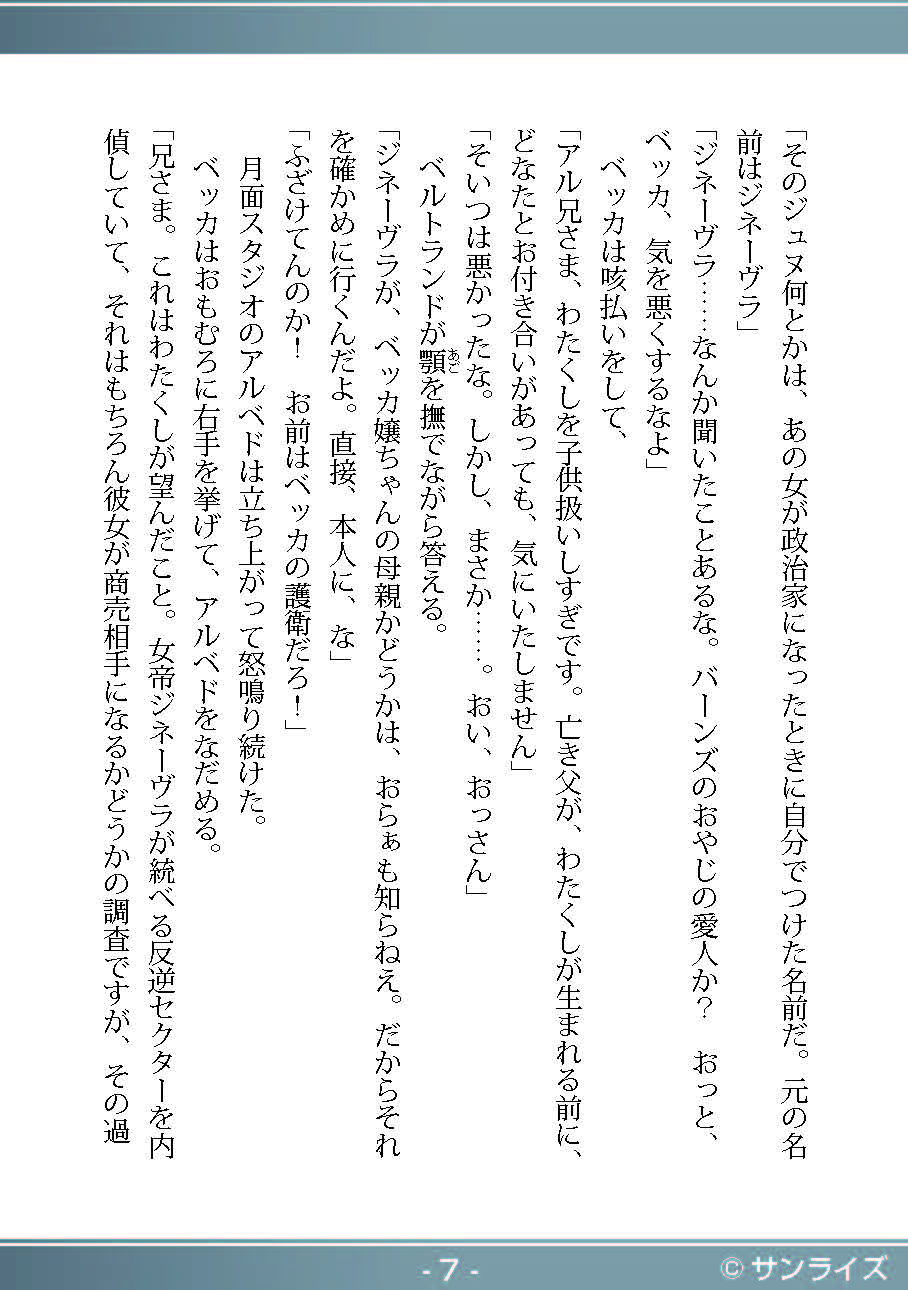 「そのジュヌ何とかは、あの女が政治家になったときに自分でつけた名前だ。元の名
前はジネーヴラ」
「ジネーヴラ……なんか聞いたことあるな。バーンズのおやじの愛人か？　おっと、
ベッカ、気を悪くするなよ」
　ベッカは咳払いをして、
「アル兄さま、わたくしを子供扱いしすぎです。亡き父が、わたくしが生まれる前に、
どなたとお付き合いがあっても、気にいたしません」
「そいつは悪かったな。しかし、まさか……。おい、おっさん」
　ベルトランドが顎あごを撫でながら答える。
「ジネーヴラが、ベッカ嬢ちゃんの母親かどうかは、おらぁも知らねえ。だからそれ
を確かめに行くんだよ。直接、本人に、な」
「ふざけてんのか！　お前はベッカの護衛だろ！」
　月面スタジオのアルベドは立ち上がって怒鳴り続けた。
　ベッカはおもむろに右手を挙げて、アルベドをなだめる。
「兄さま。これはわたくしが望んだこと。女帝ジネーヴラが統べる反逆セクターを内
偵していて、それはもちろん彼女が商売相手になるかどうかの調査ですが、その過
- 7 -
© サンライズ